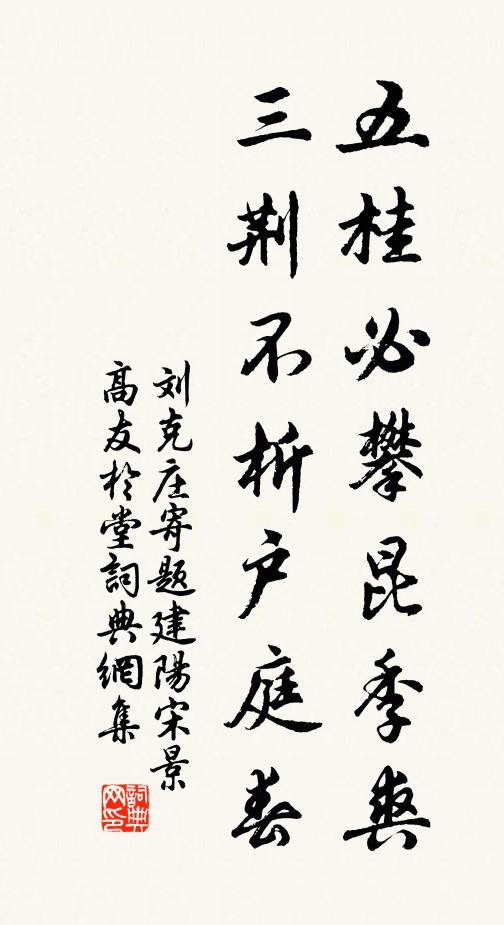 五桂必攀昆季爽
三荆不析户庭春
刘克庄寄题建陽宋景
高友於堂詞典網集
詞典網印